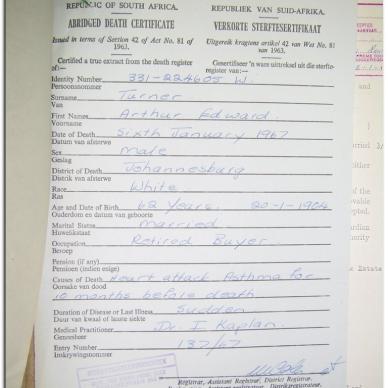 REPUBLIC OF SOUTH AFRICA. REPUBLIEK VAN SUID-AFRIKA.
ABRIDGED DEATH CERTIFICATE VERKORTE STERFTESERTIFIKAAT
Issued in terms of Section 42 of Act No. 81 of 1963. Uitgereik kragtens artikel 42 van Wet No. 81 van 1963.
Certified a true extract from the death register of:— Gesertifiseer 'n ware uittreksel uit die sterfteregister van:—
Identity Number 331-224605 W.
Persoonsnommer
Surname Turner
Van
First Names Arthur Edward.
Voorname
Date of Death Sixth January 1967
Datum van afsterwe
Sex Male
Geslag
District of Death Johannesburg
Distrik van afsterwe
Race White
Ras
Age and Date of Birth 62 Years. 20-1-1904
Ouderdom en datum van geboorte
Marital Status Married
Huwelikstaat
Occupation Retired Buyer
Beroep
Pension (if any)
Pensioen (indien enige)
Causes of Death Heart attack Asthma for
Oorsake van dood
10 months before death
Duration of Disease or Last Illness Sudden
Duur van kwaal of laaste siekte
Medical Practitioner Dr. I. Kaplan.
Geneesheer
Entry Number 137/67
Inskrywingsnommer
Registrar, Assistant Registrar, District Registrar.